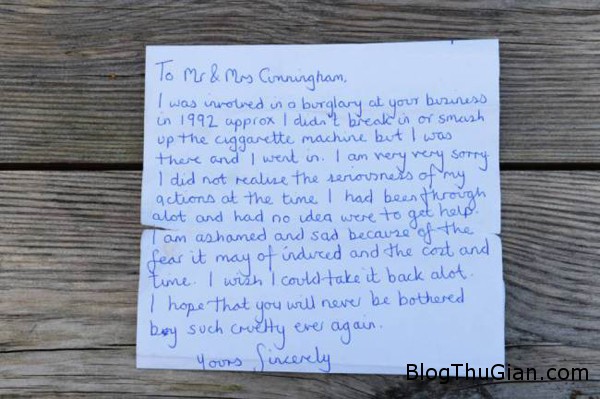 To Mr & Mrs Cunningham.
I was involved in a burglary at your business
in 1992 approx I didn't break in or smash
up the ciggarette machine but I was
there and I went in. I am very very sorry.
I did not realise the seriousness of my
actions at the time I had been through
alot and had no idea were to get help.
I am ashamed and sad because of the
fear it may of induced and the cost and
time. I wish I could take it back alot.
I hope that you will never be bothered
by such cruelty ever again.
Yours Sincerely
BlogThuGian.com